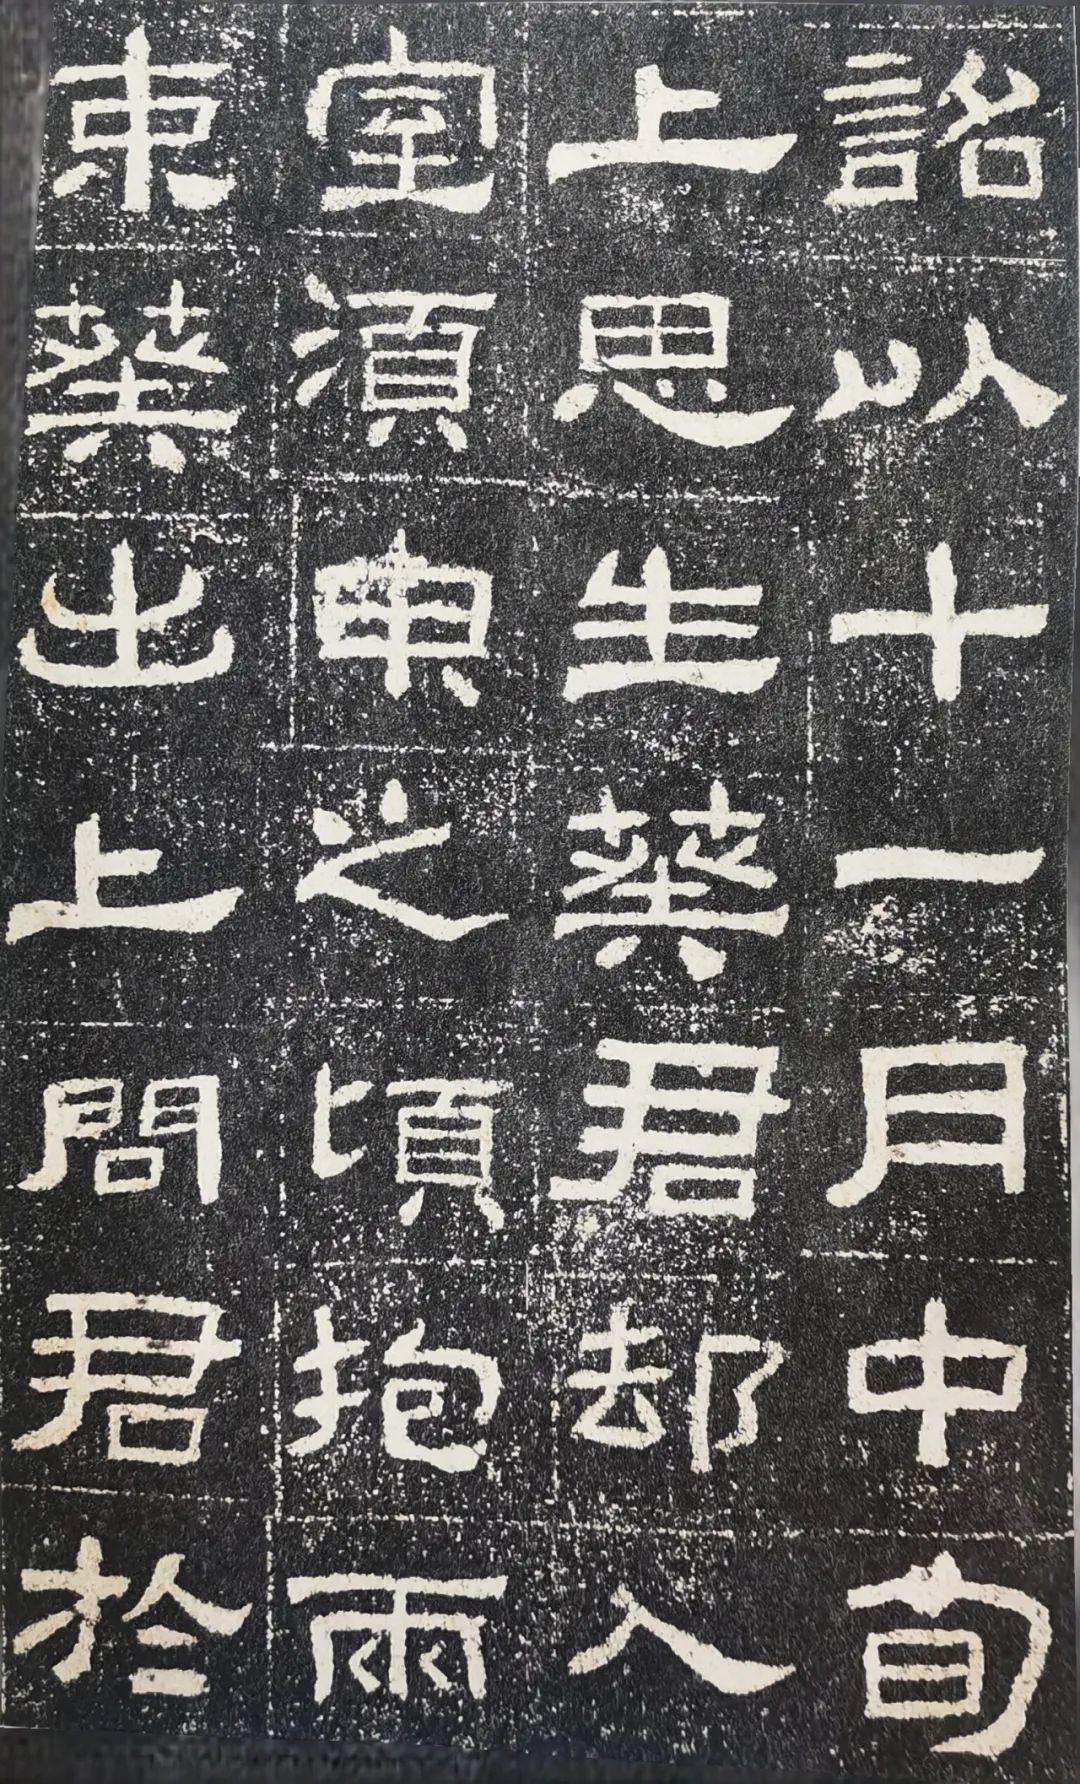 詔以十一月中旬
上思生葵君却入
室須臾之頃抱兩
束葵出上問君於